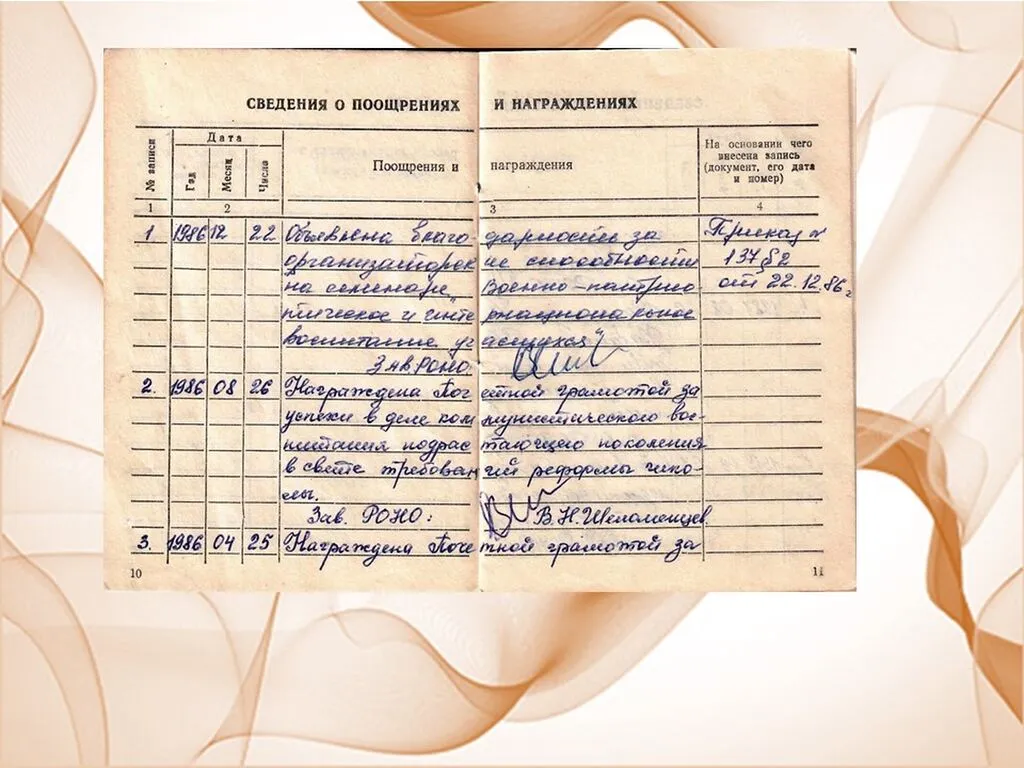 СВЕДЕНИЯ О ПООЩРЕНИЯХ И НАГРАЖДЕНИЯХ
№ записи
Дата
Год
Месяц
Число
Поощрения и награждения
На основании чего
внесена запись
(документ, его дата
и номер)
1 2 3 4
1 1986 12 22 Объявлена благодарность за Приказ №
организаторские способности 137 §2
на семинаре „Военно-патрио- от 22.12.86г
тическое и интернациональное
воспитание учащихся"
Зав.РОНО
2. 1986 08 26 Награждена Почетной грамотой за
успехи в деле коммунистического вос-
питания подрастающего поколения
в свете требований реформы шко-
лы.
Зав. РОНО: В.Н.Шеломенцев
3. 1986 04 25 Награждена Почетной грамотой за
10 11